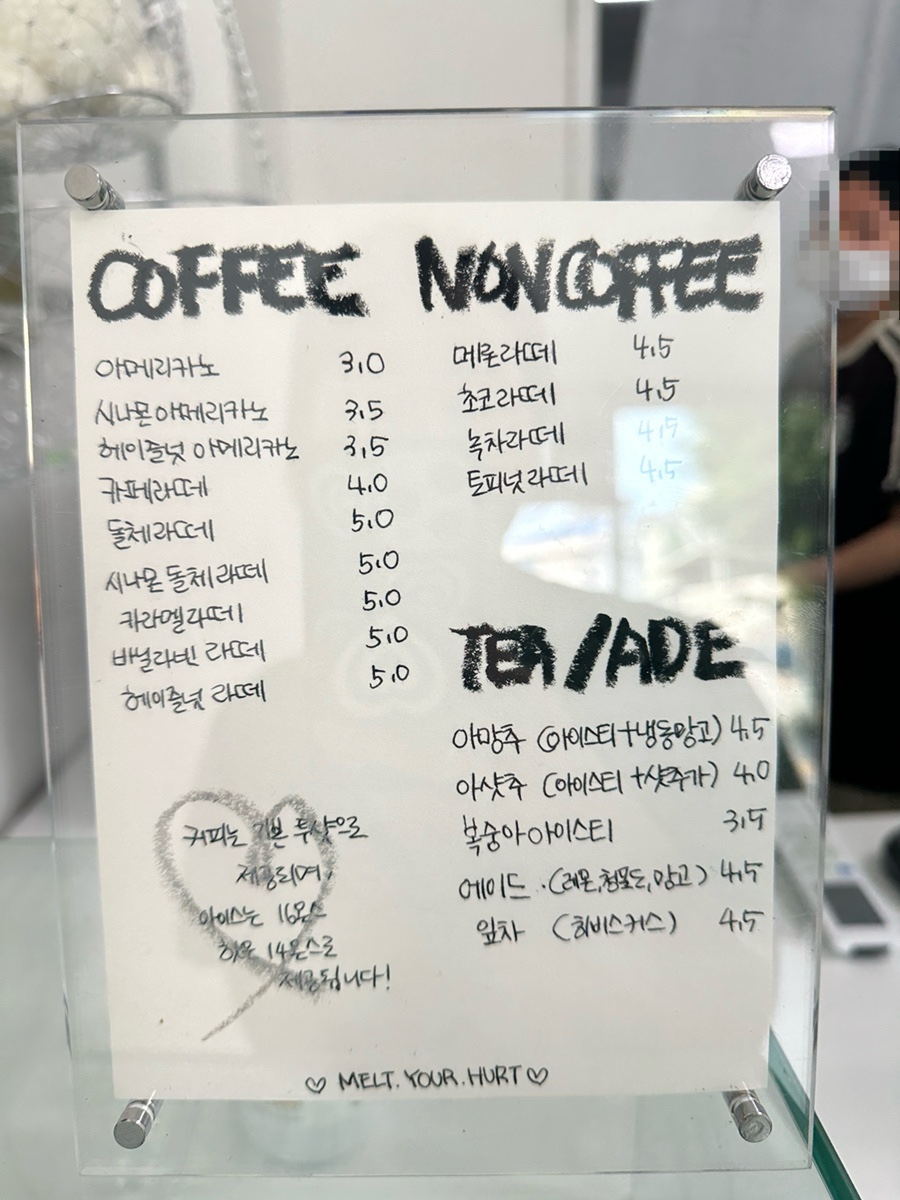 COFFEE
아메리카노 3.0
시나몬아메리카노 3.5
헤이즐넛 아메리카노 3.5
카페라떼 4.0
돌체라떼 5.0
시나몬 돌체라떼 5.0
카라멜라떼 5.0
바닐라빈 라떼 5.0
헤이즐넛 라떼 5.0
커피는 기본 투샷으로
제공되며,
아이스는 16온스
핫은 14온스로
제공됩니다!
NON COFFEE
메론라떼 4.5
초코라떼 4.5
녹차라떼 4.5
토피넛라떼 4.5
TEA/ADE
아망추 (아이스티+냉동망고) 4.5
아샷추 (아이스티+샷추가) 4.0
복숭아아이스티 3.5
에이드.(레몬,청포도,망고) 4.5
잎차 (히비스커스) 4.5
♡ MELT.YOUR.HURT♡